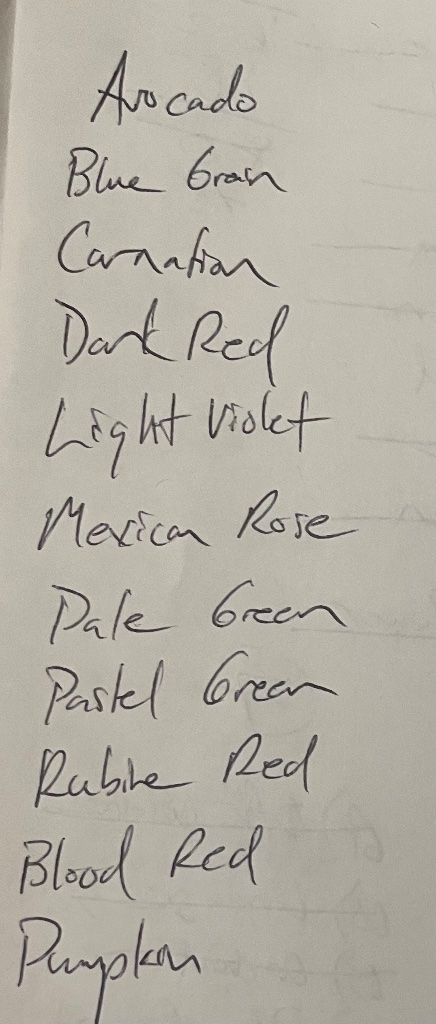 Avocado
Blue Green
Carnation
Dark Red
Light Violet
Mexican Rose
Pale Green
Pastel Green
Rubine Red
Blood Red
Pumpkin